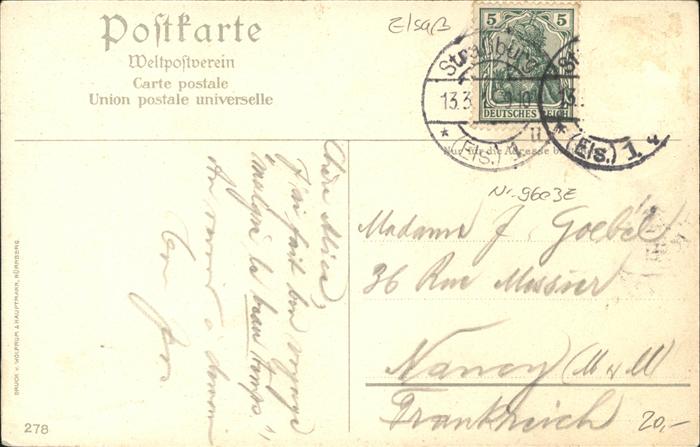 Postkarte
Weltpostverein
Carte postale
Union postale universelle
Elsaß
5 5
DEUTSCHES REICH
Straßburg
13.3
* (Els.) 1
St
13.
* (Els.) 1.
Nur für die Adresse
Nr. 9603E
Madame J. Goebel
36 Rue Messier
Nancy (M & M)
Frankreich
20,-
Chère Alice,
J'ai fait bon voyage
malgré le beau temps"
Au revoir à demain
DRUCK v. WOLFRUM & HAUPTMANN, NÜRNBERG
278